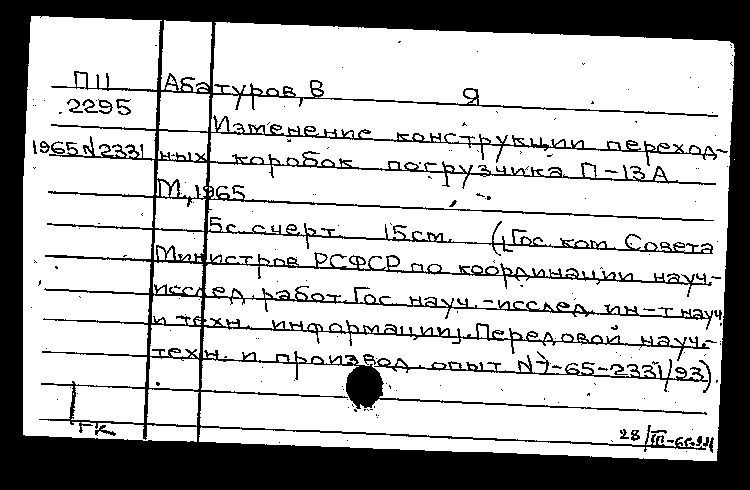 П11 Абатуров, В Я
2295
Изменение конструкции переход-
1965 N2331 нных коробок погрузчика П-13А
М., 1965
5с. счерт. 15см. ([Гос. ком. Совета
Министров РСФСР по координации науч.-
исслед. работ. Гос науч.-исслед. ин-т науч.
и техн. информации]. Передовой науч.-
техн. и производ. опыт N -65-2331/93)
ГК
28/III-66